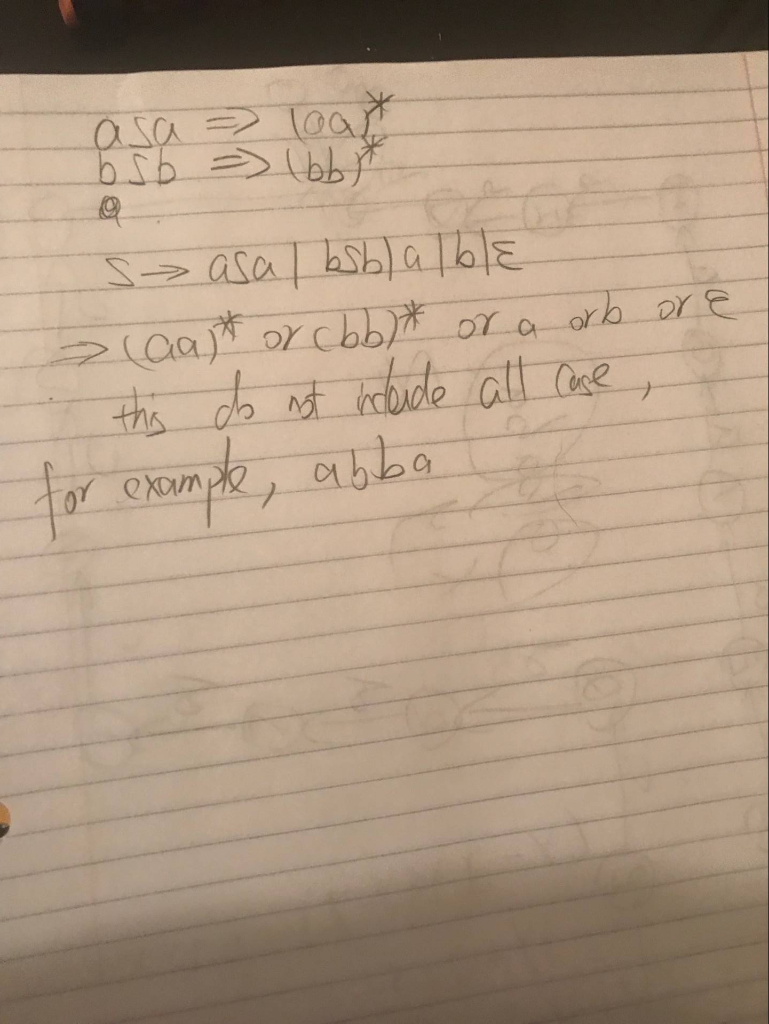 asa => (aa)*
bsb => (bb)*
s → asa | bsb | a | b | ε
=> (aa)* or (bb)* or a or b or ε
this do not include all case,
for example, abba